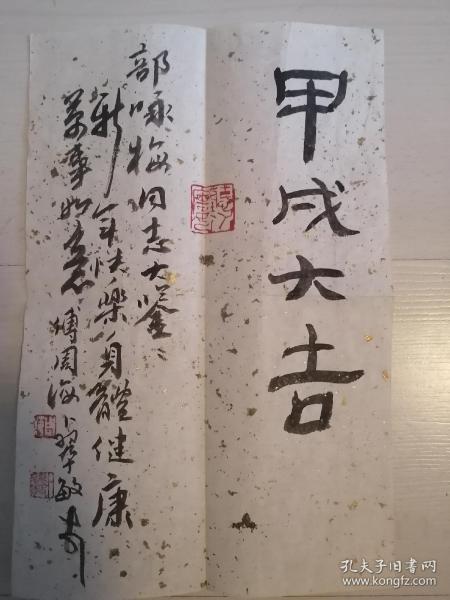 甲戌大吉
部咏梅同志大鉴：
新年快樂身體健康
萬事如意
傅周海
敏
孔夫子旧书网
www.kongfz.com